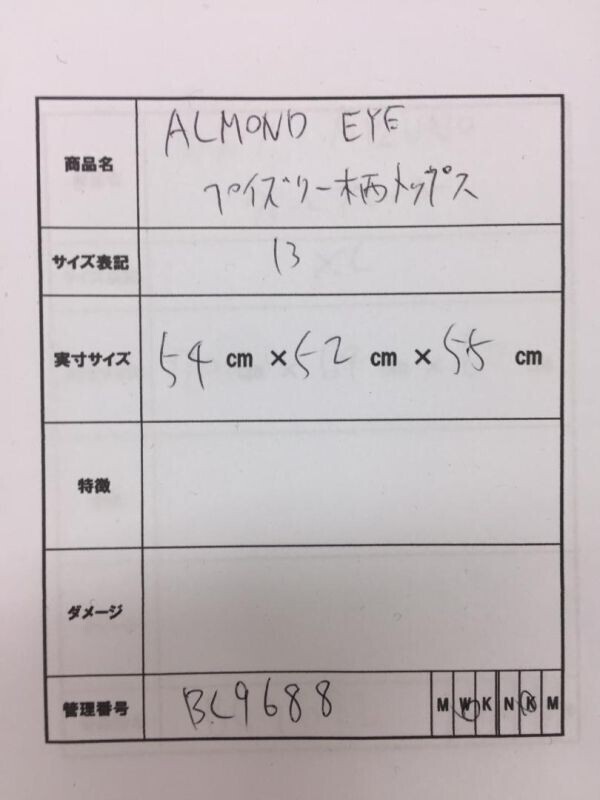 商品名
ALMOND EYE
ペイズリー柄トップス
サイズ表記
13
実寸サイズ
54 cm ×52 cm × 55 cm
特徴
ダメージ
管理番号
BC9688
M W K N K M